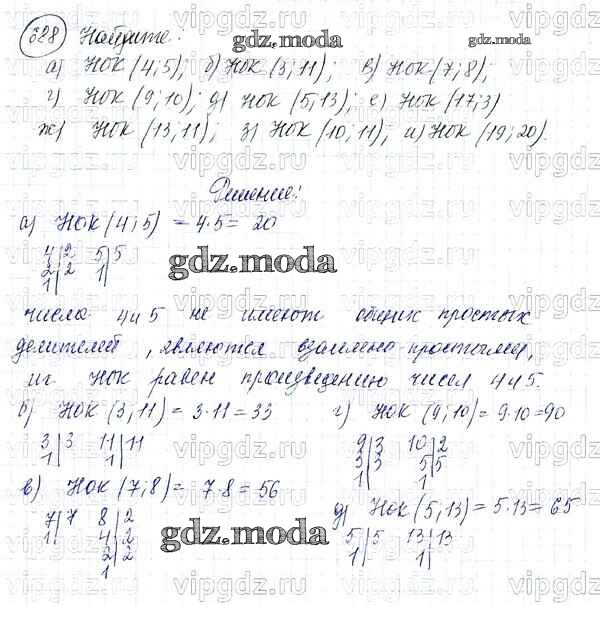 628 Найдите:
а) НОК (4; 5); б) НОК (3; 11); в) НОК (7; 8);
г) НОК (9; 10); д) НОК (5; 13); е) НОК (17; 3)
ж) НОК (13; 11); з) НОК (10; 11); и) НОК (19; 20).
Решение:
а) НОК (4; 5) = 4·5 = 20
4|2 5|5
2|2 1|
1|
числа 4 и 5 не имеют общих простых
делителей, являются взаимно-простыми,
их НОК равен произведению чисел 4 и 5.
б) НОК (3; 11) = 3·11 = 33
3|3 11|11
1| 1|
г) НОК (9; 10) = 9·10 = 90
9|3 10|2
3|3 5|5
1| 1|
в) НОК (7; 8) = 7·8 = 56
7|7 8|2
1| 4|2
2|2
1|
д) НОК (5; 13) = 5·13 = 65
5|5 13|13
1| 1|
gdz.moda
gdz.moda
gdz.moda
gdz.moda
vipgdz.ru